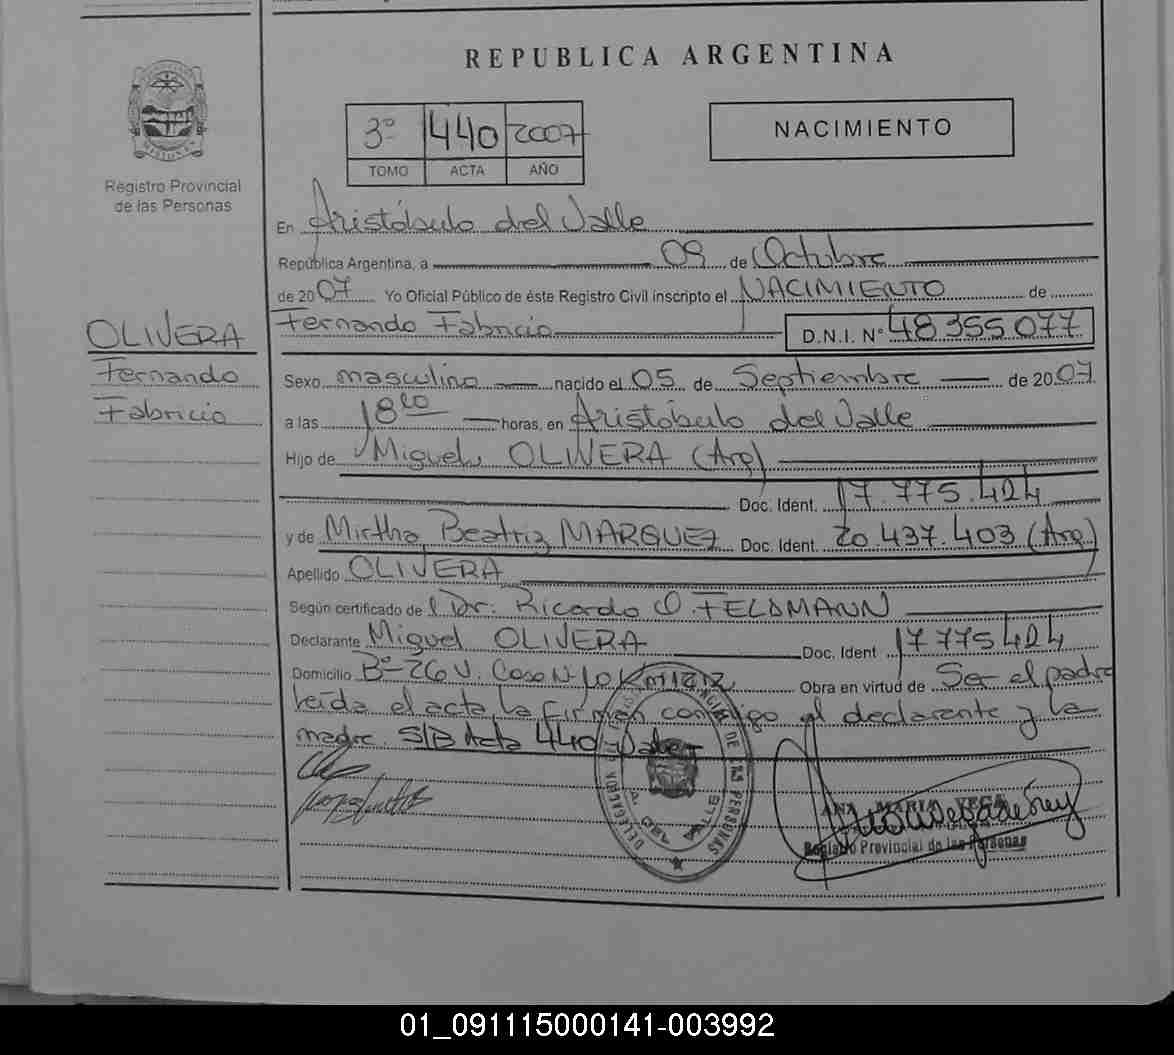 REPUBLICA ARGENTINA
MISIONES
Registro Provincial
de las Personas
3º 440 2007
TOMO ACTA AÑO
NACIMIENTO
En Aristóbulo del Valle
República Argentina, a 09 de Octubre
de 2007 Yo Oficial Público de éste Registro Civil inscripto el NACIMIENTO de
Fernando Fabricio D.N.I. Nº 48355077
OLIVERA
Fernando
Fabricio
Sexo masculino nacido el 05 de Septiembre de 2007
a las 18 horas, en Aristóbulo del Valle
Hijo de Miguel OLIVERA (Arg)
Doc. Ident. 17.775.424
y de Mirtha Beatriz MARQUEZ Doc. Ident. 20.437.403 (Arg.)
Apellido OLIVERA
Según certificado de Dr. Ricardo O. FELDMANN
Declarante Miguel OLIVERA Doc. Ident 17775424
Domicilio Bº 26 V. Casa Nº 10 Obra en virtud de Ser el padre
leída el acta la firman conmigo el declarente y la
madre. S/B Acta 440 Vale
DE LAS PERSONAS
ANA MARIA
Registro Provincial de las Personas
01_091115000141-003992